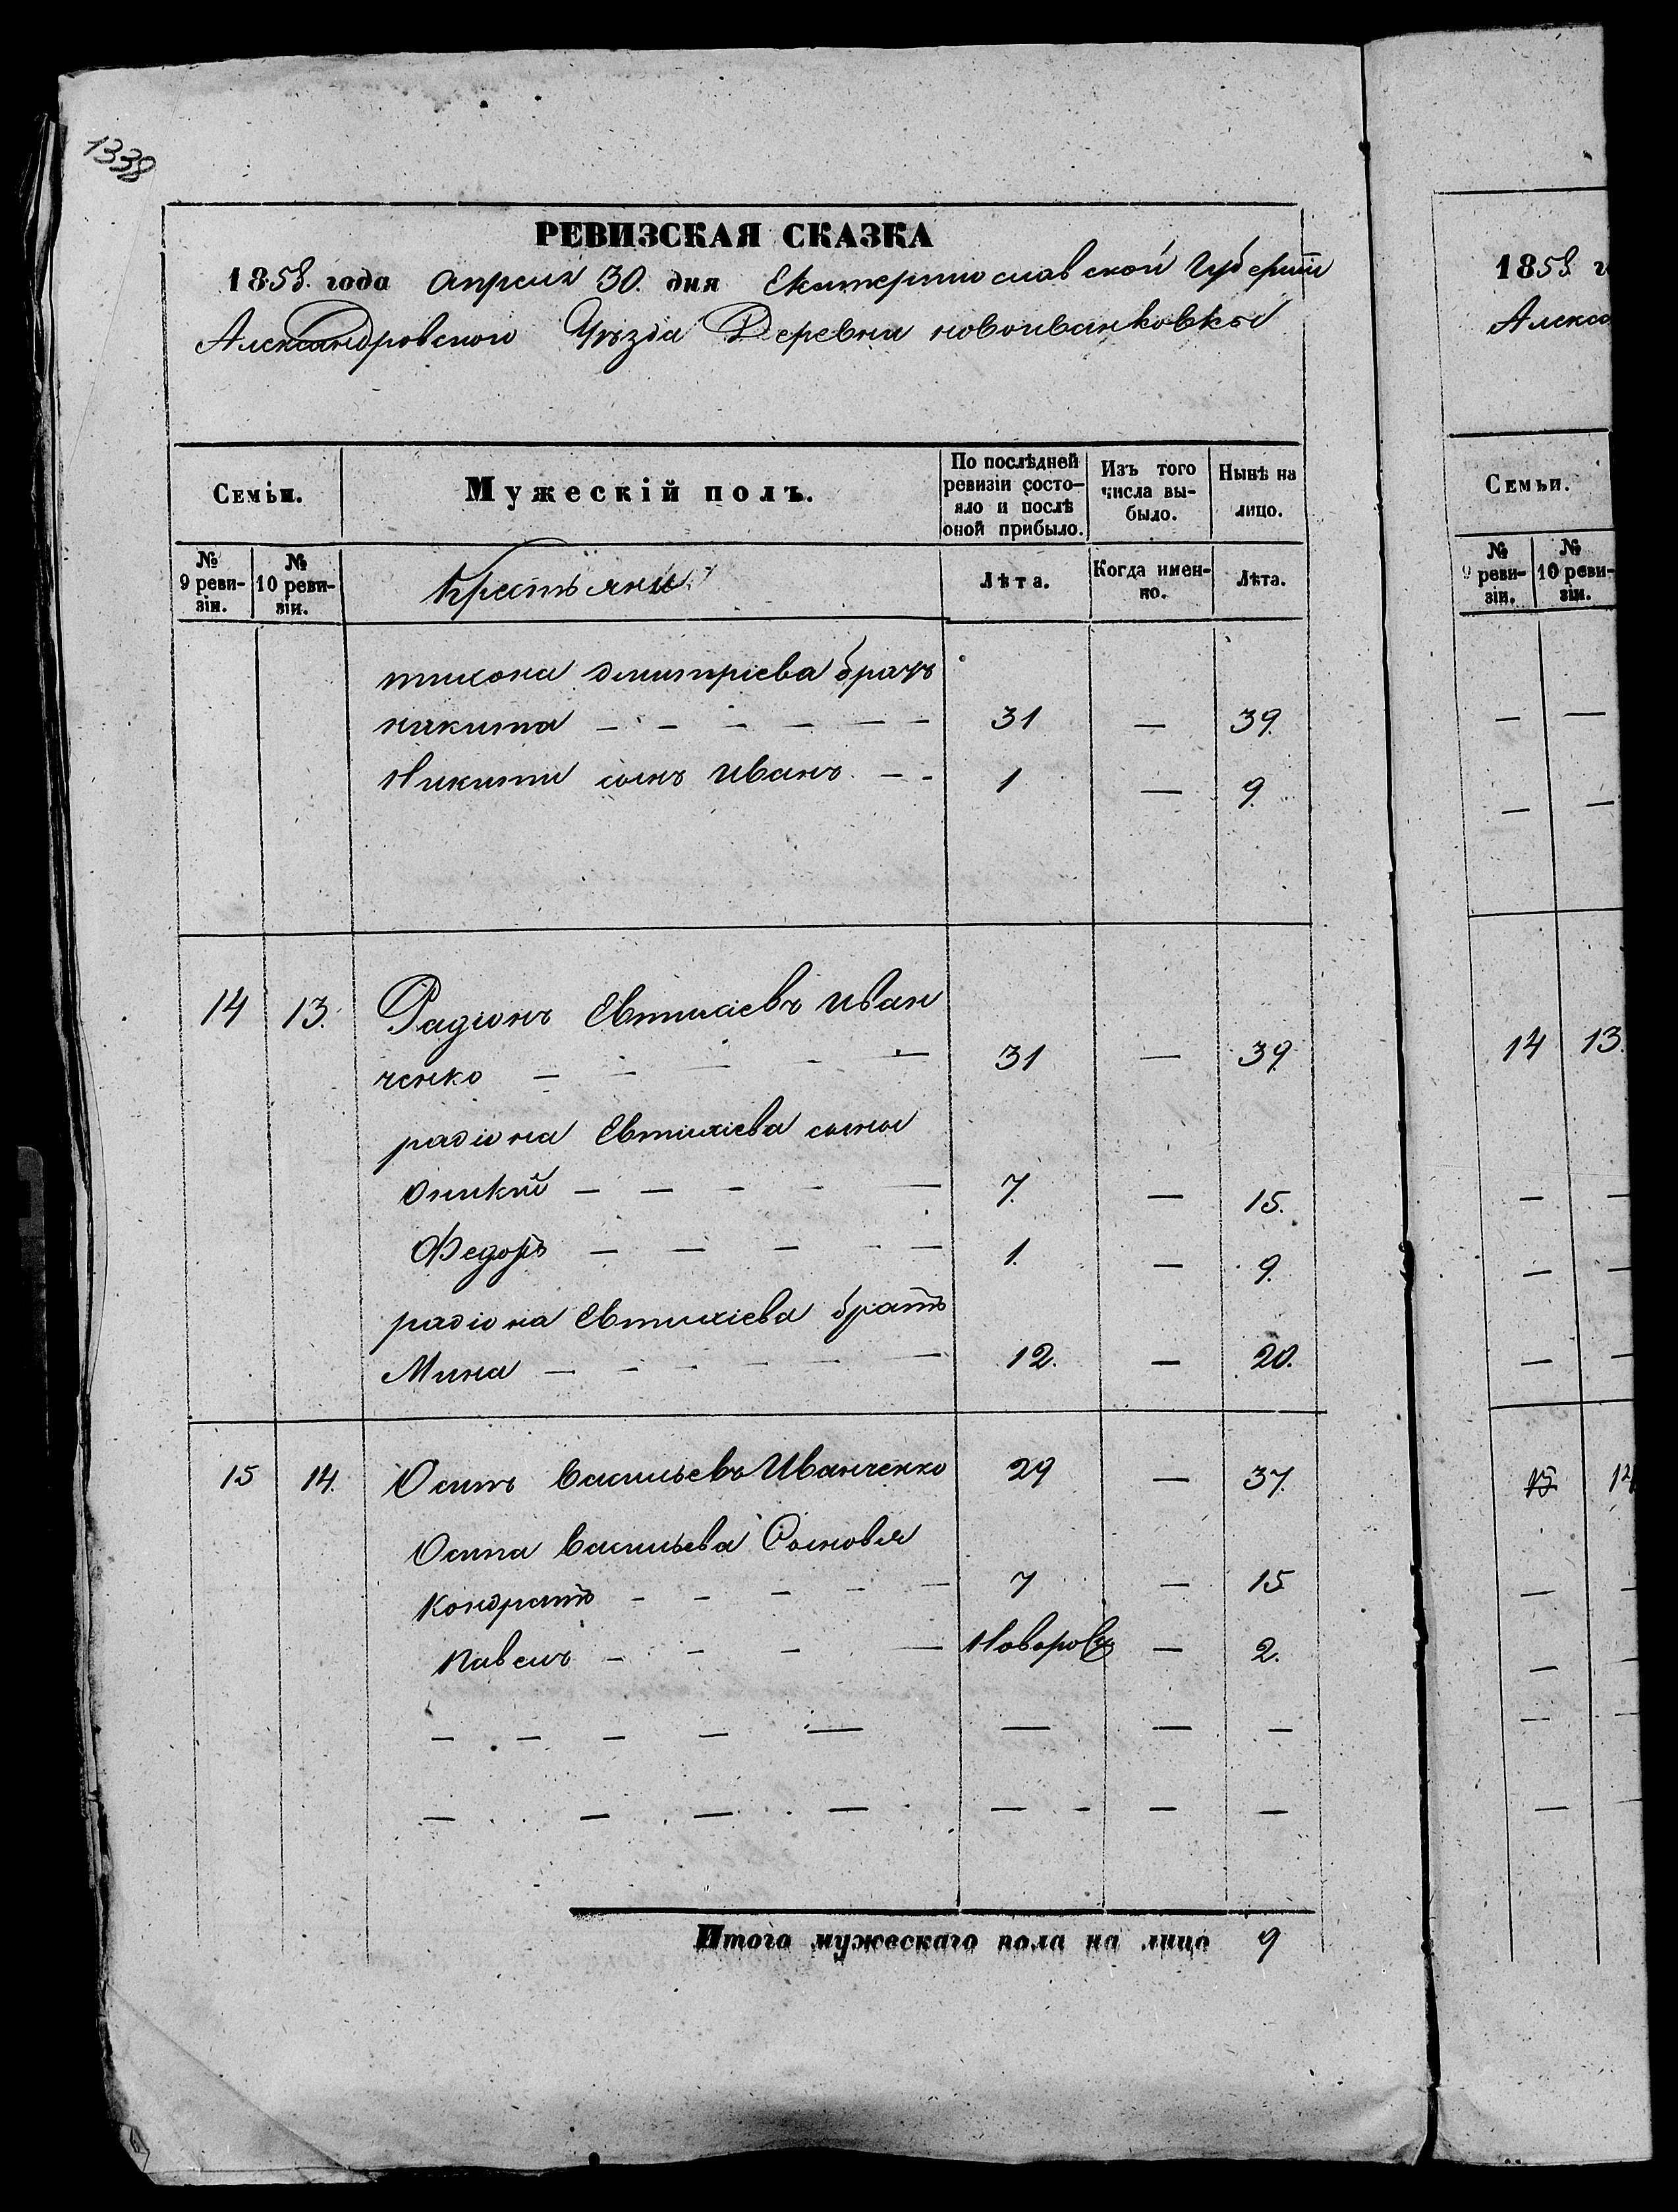 1338
РЕВИЗСКАЯ СКАЗКА
1858. года апреля 30. дня Екатеринославской Губерніи
Александровского Уѣзда Деревни новоиванковки
Семьи.
Мужескій полъ.
По послѣдней ревизіи состояло и послѣ оной прибыло.
Изъ того числа выбыло.
Нынѣ на лицо.
№ 9 ревизіи.
№ 10 ревизіи.
Крестьяне
Лѣта.
Когда именно.
Лѣта.
тихона дмитріева братъ
никита — — — — — — 31 — 39.
Никиты сынъ иванъ — — 1 — 9.
14 13. Радіонъ Евтихіевъ иван
ченко — — — — — 31 — 39
радіона Евтихіева сыны
Оникій — — — — — 7. — 15.
Федоръ — — — — — 1. — 9.
радіона Евтихіева братъ
Мина — — — — — — 12. — 20.
15 14. Осипъ Васильевъ Иванченко 29 — 37.
Осипа Васильева Сыновья
Кондратъ — — — — — 7 — 15
Павелъ — — — — Новорож — 2.
— — — — — — — —
— — — — — — — —
Итого мужескаго пола на лицо 9
1858 г
Алекса
Семьи.
№ 9 ревизіи.
№ 10 ревизіи.
14 13.
15 14